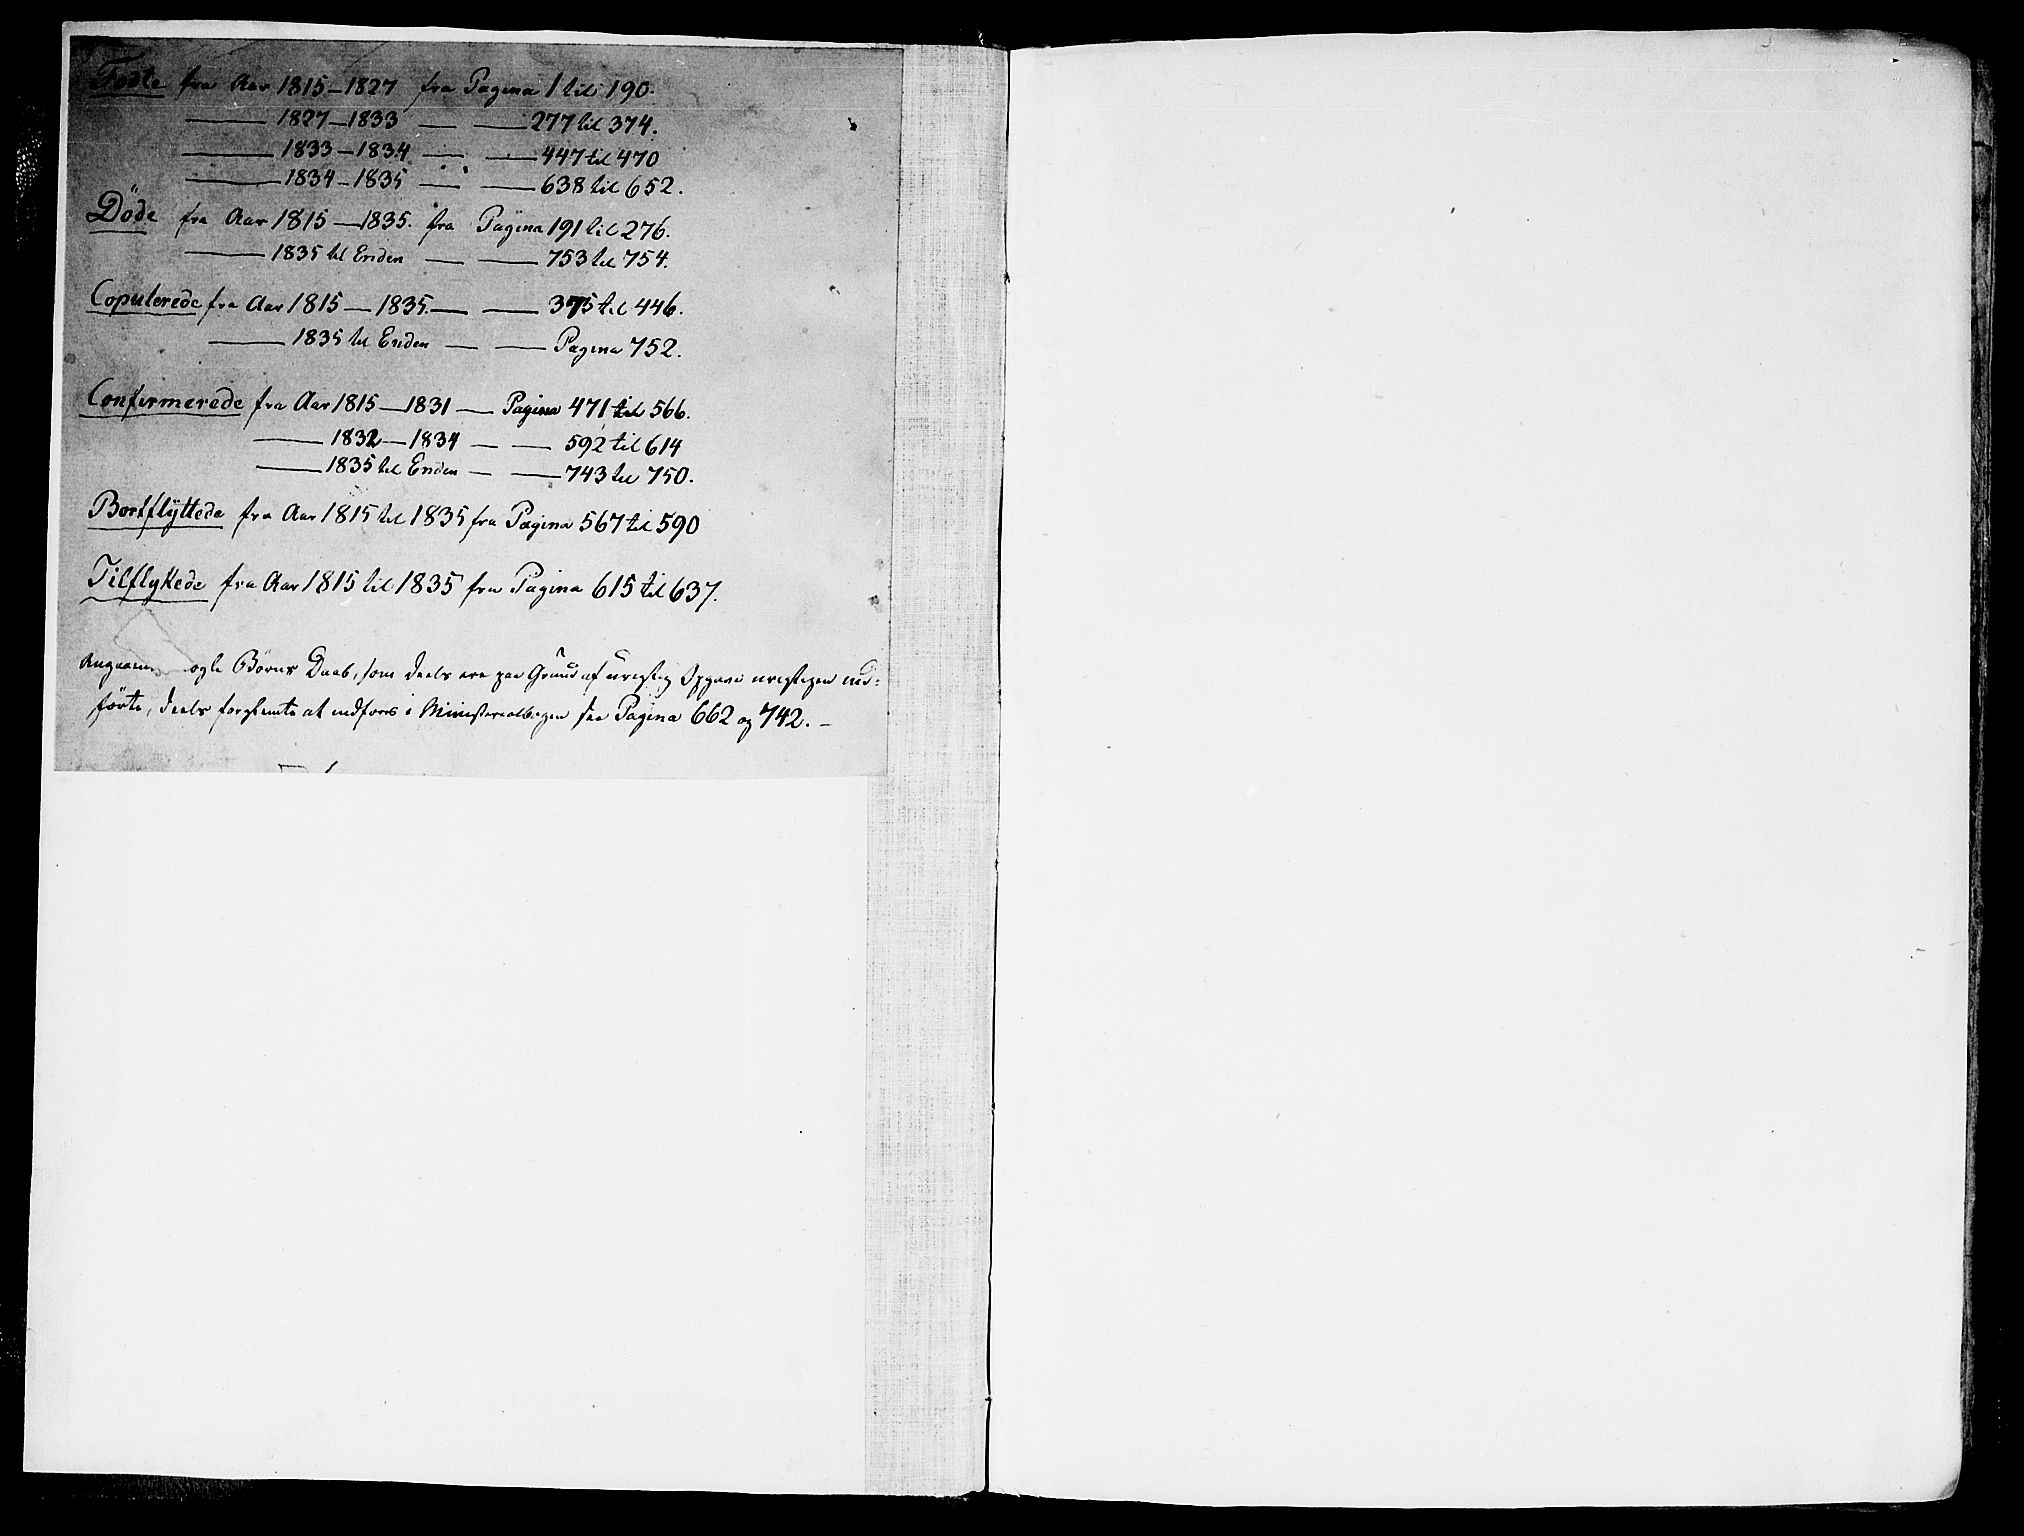 Fødte fra Aar 1815–1827 fra Pagina 1 til 190.
—— 1827–1833 — — 277 til 374.
—— 1833–1834 — — 447 til 470
—— 1834–1835 — — 638 til 652.
Döde fra Aar 1815–1835. fra Pagina 191 til 276.
—— 1835 til Enden — — 753 til 754.
Copulerede fra Aar 1815–1835. — — 375 til 446.
—— 1835 til Enden — — Pagina 752.
Confirmerede fra Aar 1815–1831 — Pagina 471 til 566.
—— 1832–1834 — — 592 til 614
—— 1835 til Enden — — 743 til 750.
Bortflyttede fra Aar 1815 til 1835 fra Pagina 567 til 590
Tilflyttede fra Aar 1815 til 1835 fra Pagina 615 til 637.
ogle Børns Daab, som deels ere paa Grund af urigtig Opgave urigtigen ind-
förte, deels forglemte at indföres i Ministerialbogen see Pagina 662 og 742. –